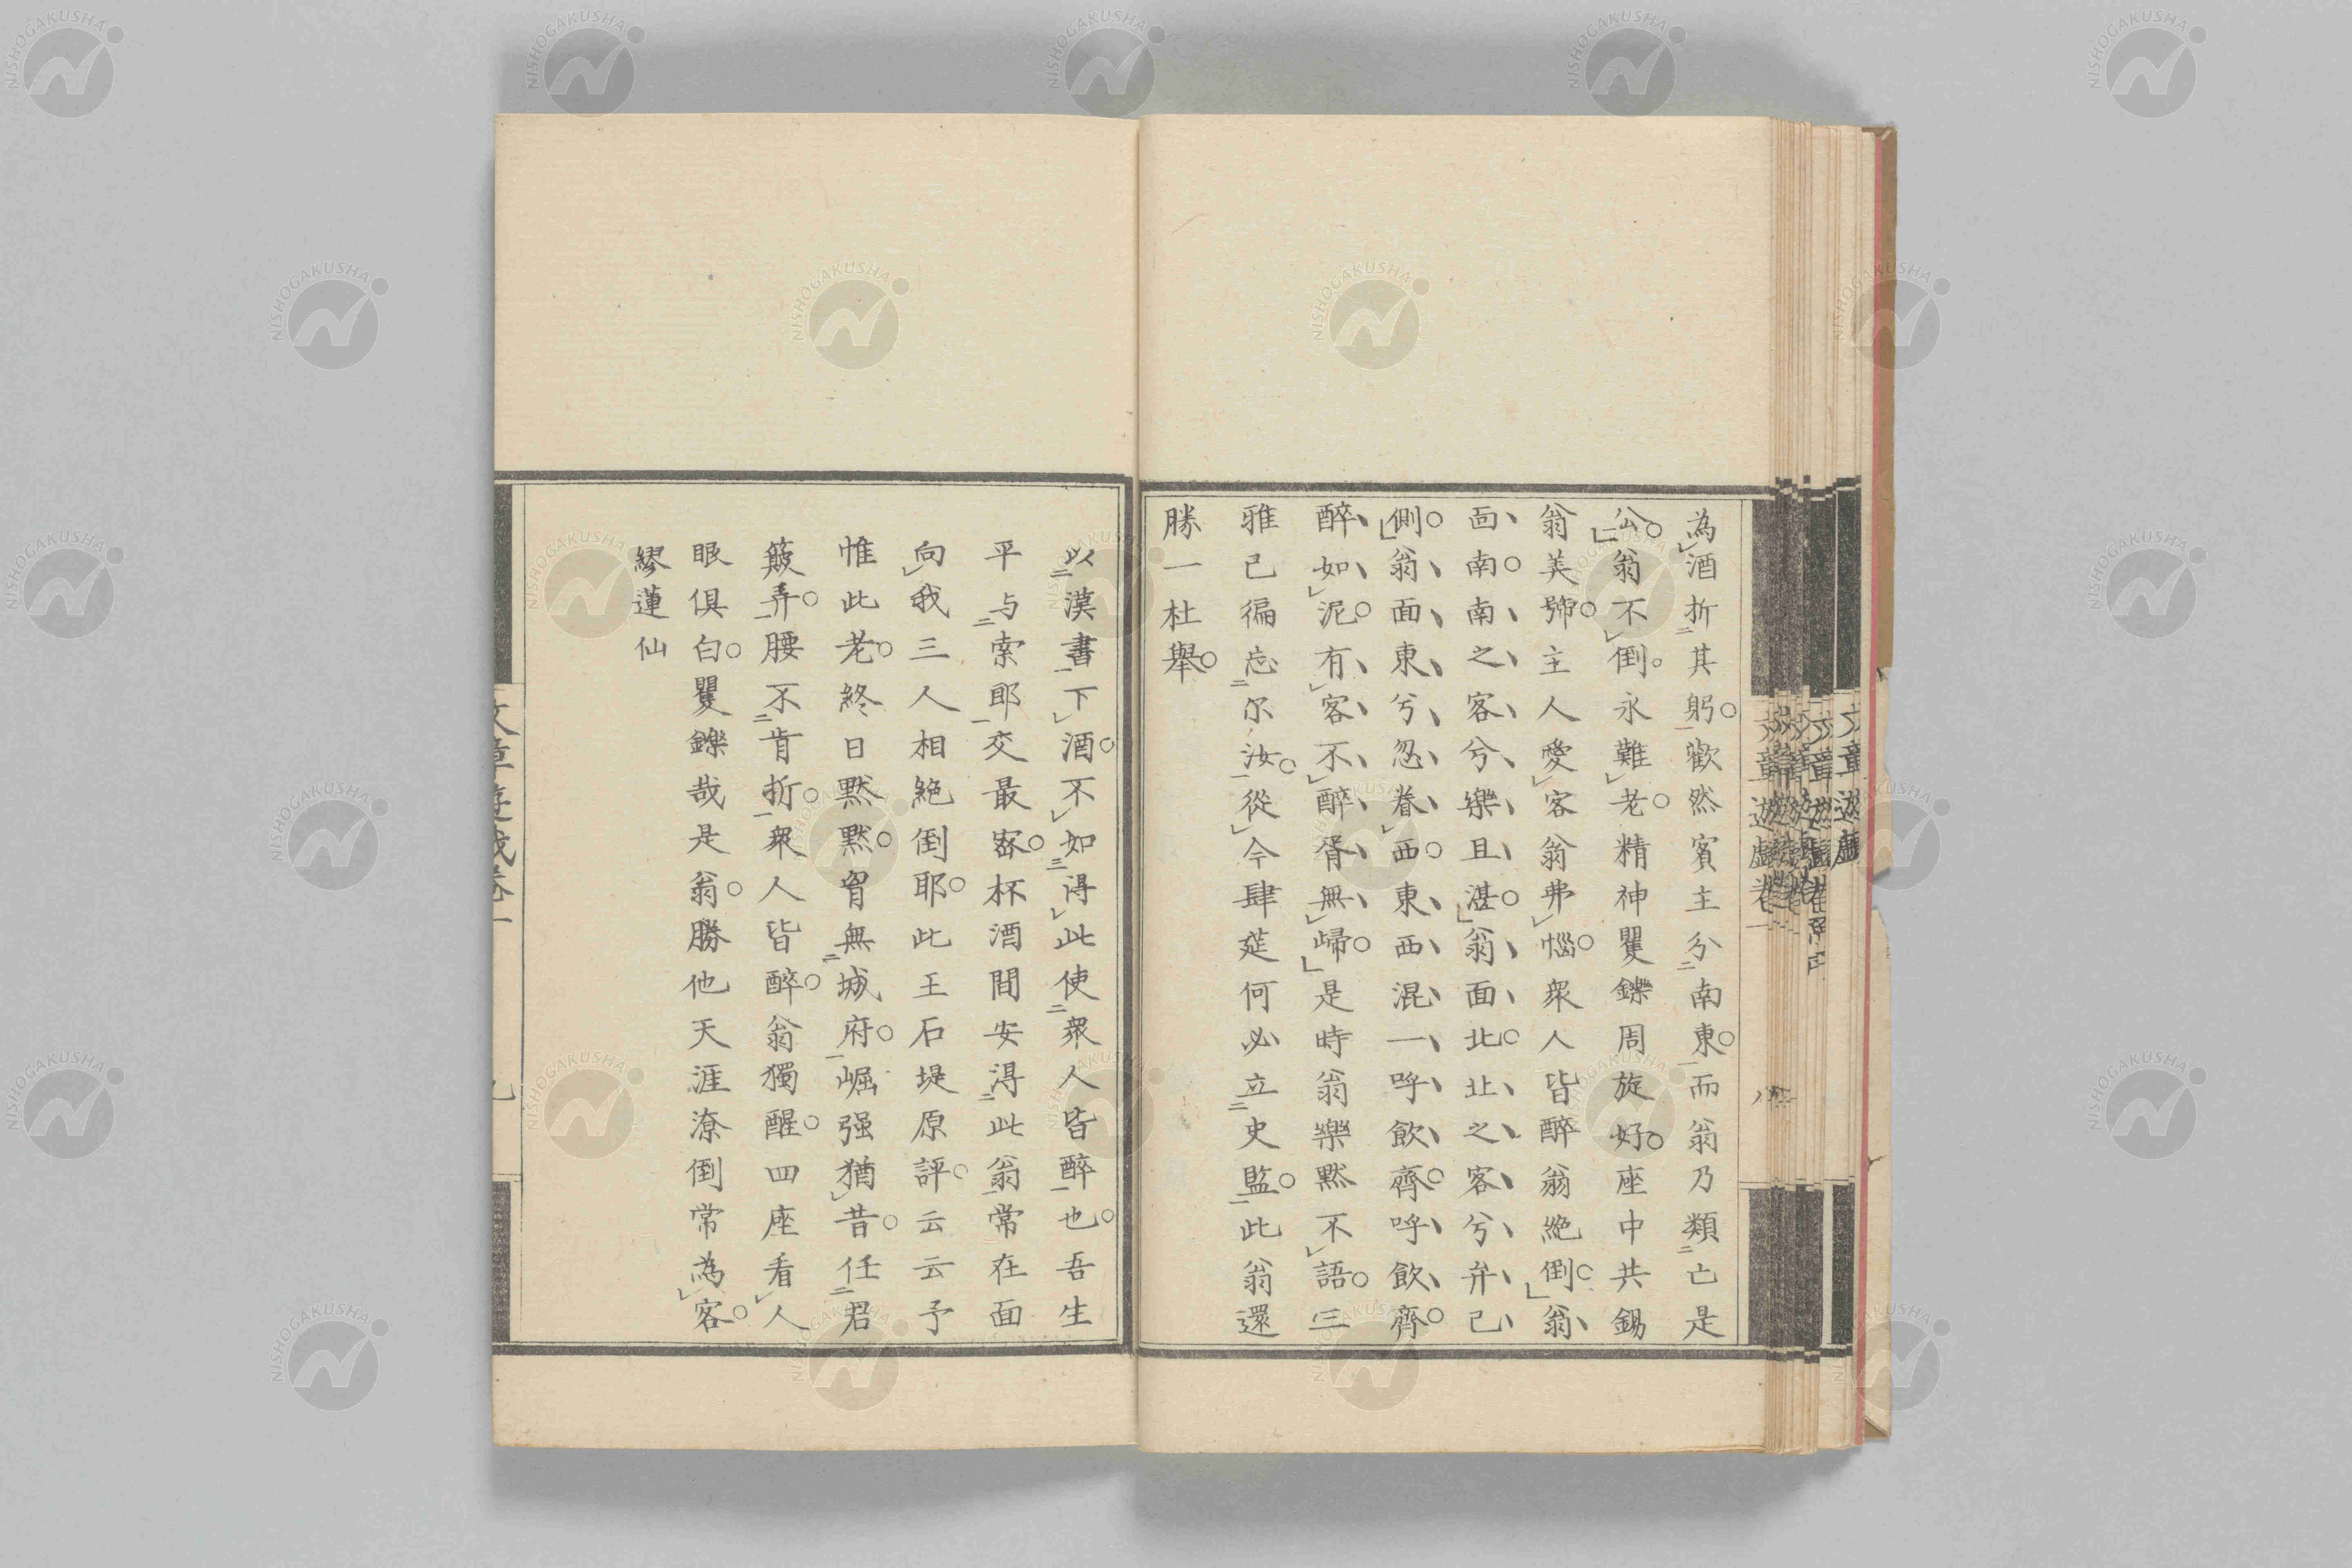 為酒折其躬。歡然賓主分南東。而翁乃類亡是
公。翁不倒。永難老。精神矍鑠周旋好。座中共錫
翁美號。主人愛客翁弗惱。衆人皆醉翁絶倒。翁
面南。南之客兮樂且湛。翁面北。北之客兮弁已
側。翁面東兮忽眷西。東西混一呼飲齊。呼飲齊。
醉如泥。有客不醉胥無歸。是時翁樂默不語。三
雅已徧忘尔汝。從今肆筵何必立史監。此翁還
勝一杜舉。
以漢書下酒。不如得此使衆人皆醉也。吾生
平与索郎交最密。杯酒間安得此翁常在面
向我三人相絶倒耶。此王石堤原評。云云予
惟此老。終日默默。胷無城府。崛强猶昔。任君
簸弄。腰不肯折。衆人皆醉。翁獨醒。四座看人
眼俱白。矍鑠哉是翁。勝他天涯潦倒常為客。
繆蓮仙
NISHOGAKUSHA